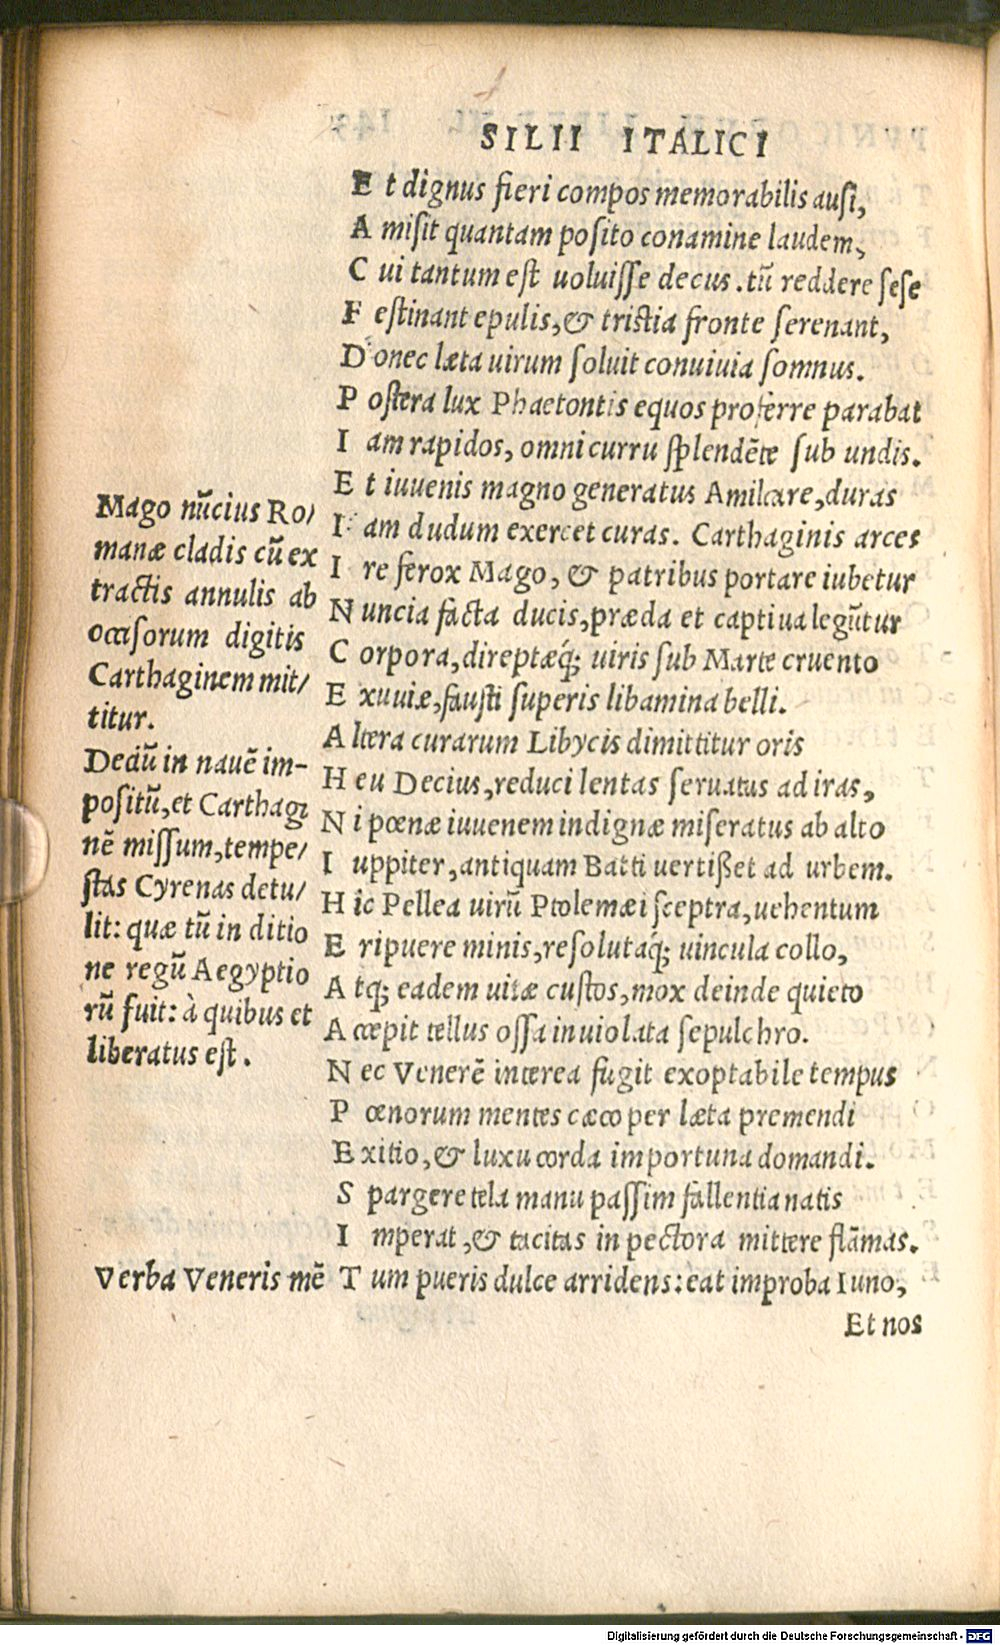 SILII ITALICI
E t dignus fieri compos memorabilis ausi,
A misit quantam posito conamine laudem,
C ui tantum est uoluisse decus. tũ reddere sese
F estinant epulis, & tristia fronte serenant,
D onec læta uirum soluit conuiuia somnus.
P ostera lux Phaetontis equos proferre parabat
I am rapidos, omni curru splendẽte sub undis.
E t iuuenis magno generatus Amilcare, duras
I am dudum exercet curas. Carthaginis arces
I re ferox Mago, & patribus portare iubetur
N uncia facta ducis, præda et captiua legũtur
C orpora, direptæq́; uiris sub Marte cruento
E xuuiæ, fausti superis libamina belli.
A ltera curarum Libycis dimittitur oris
H eu Decius, reduci lentas seruatus ad iras,
N i pœnæ iuuenem indignæ miseratus ab alto
I uppiter, antiquam Batti uertißet ad urbem.
H ic Pellea uirũ Ptolemæi sceptra, uehentum
E ripuere minis, resolutaq́; uincula collo,
A tq; eadem uitæ custos, mox deinde quieto
A ccepit tellus ossa inuiolata sepulchro.
N ec Venerẽ interea fugit exoptabile tempus
P œnorum mentes cæco per læta premendi
E xitio, & luxu corda importuna domandi.
S pargere tela manu passim fallentia natis
I mperat, & tacitas in pectora mittere flãmas.
T um pueris dulce arridens: eat improba Iuno,
Et nos
Mago nũcius Ro/
manæ cladis cũ ex
tractis annulis ab
occisorum digitis
Carthaginem mit/
titur.
Deciũ in nauẽ im-
positũ, et Carthagi
nẽ missum, tempe/
stas Cyrenas detu/
lit: quæ tũ in ditio
ne regũ Aegyptio
rũ fuit: à quibus et
liberatus est.
Verba Veneris mẽ
Digitalisierung gefördert durch die Deutsche Forschungsgemeinschaft - DFG